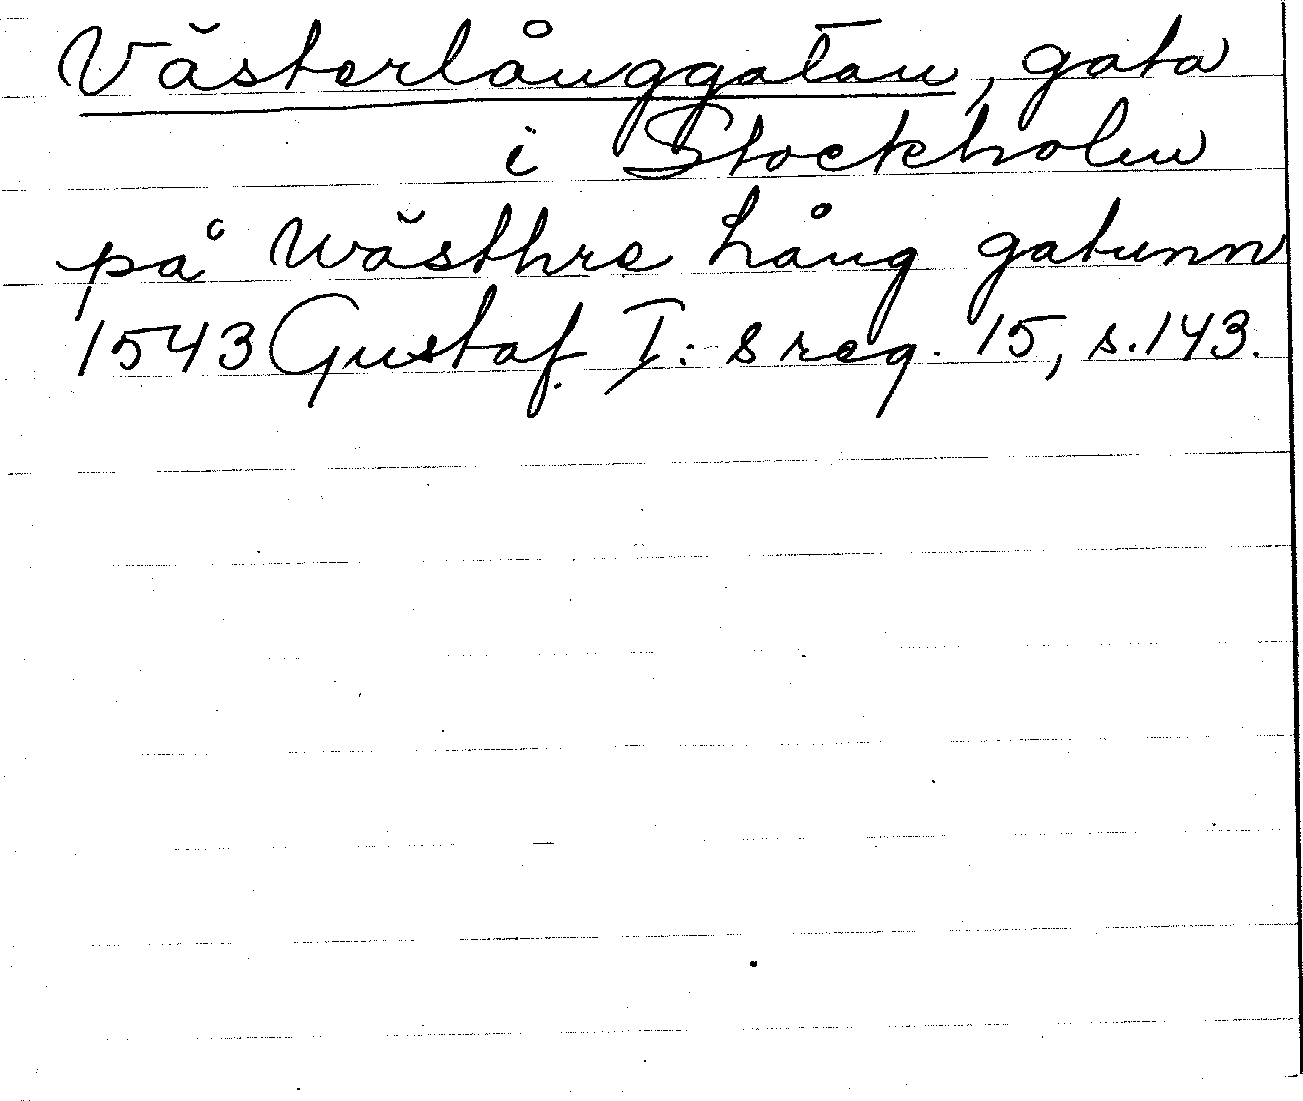 Västerlånggatan, gata
i Stockholm
på Wästhre Lång gatunn
1543 Gustaf I:s reg. 15, s. 143.